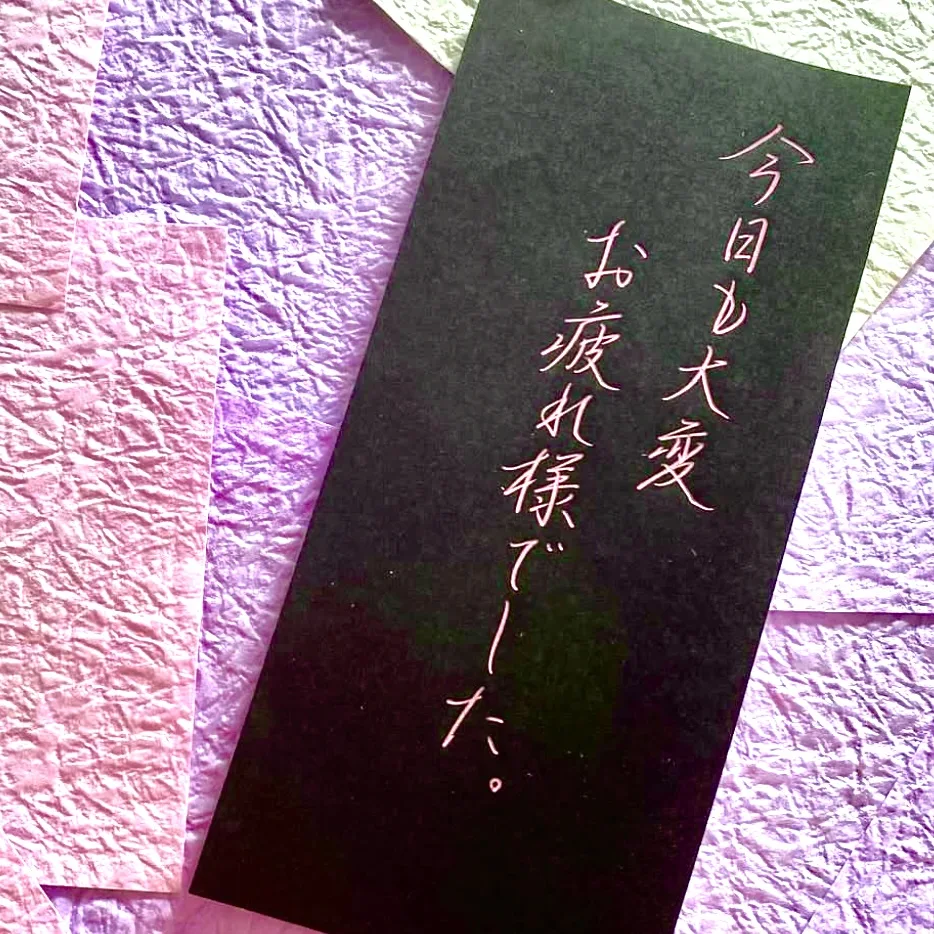 今日も大変
お疲れ様でした。